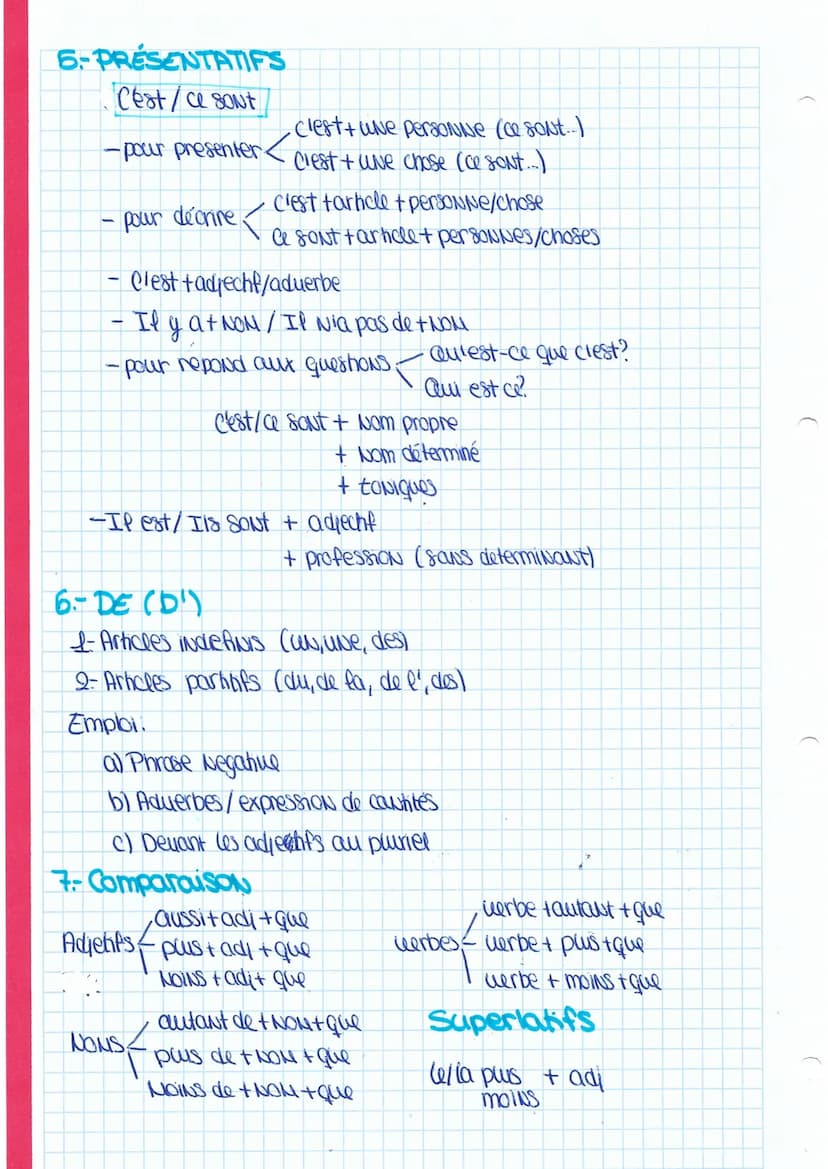 5.- PRÉSENTATIFS
C'est / ce sont
- pour presenter
C'est + une personne (ce sont..)
C'est + une chose (ce sont...)
- pour décrire
C'est + article + personne/chose
Ce sont + article + personnes/choses
- C'est + adjectif/adverbe
- Il y a + NOM / Il n'a pas de + NOM
- pour repond aux questions
Qu'est-ce que c'est?
Qui est ce?
C'est/ce sont + Nom propre
+ Nom déterminé
+ toniques
- Il est / Ils sont + adjectif
+ profession (sans determinant)
6.- DE (D')
1- Articles indefinis (un, une, des)
2- Articles partitifs (du, de la, de l', des)
Emploi:
a) Phrase negative
b) Adverbes / expression de cantités
c) Devant les adjectifs au pluriel
7.- Comparaison
Adjetifs
aussi + adj + que
plus + adj + que
moins + adj + que
verbes
verbe + autant + que
verbe + plus + que
verbe + moins + que
NOMS
autant de + NOM + que
plus de + NOM + que
Moins de + NOM + que
Superlatifs
le/la plus + adj
moins